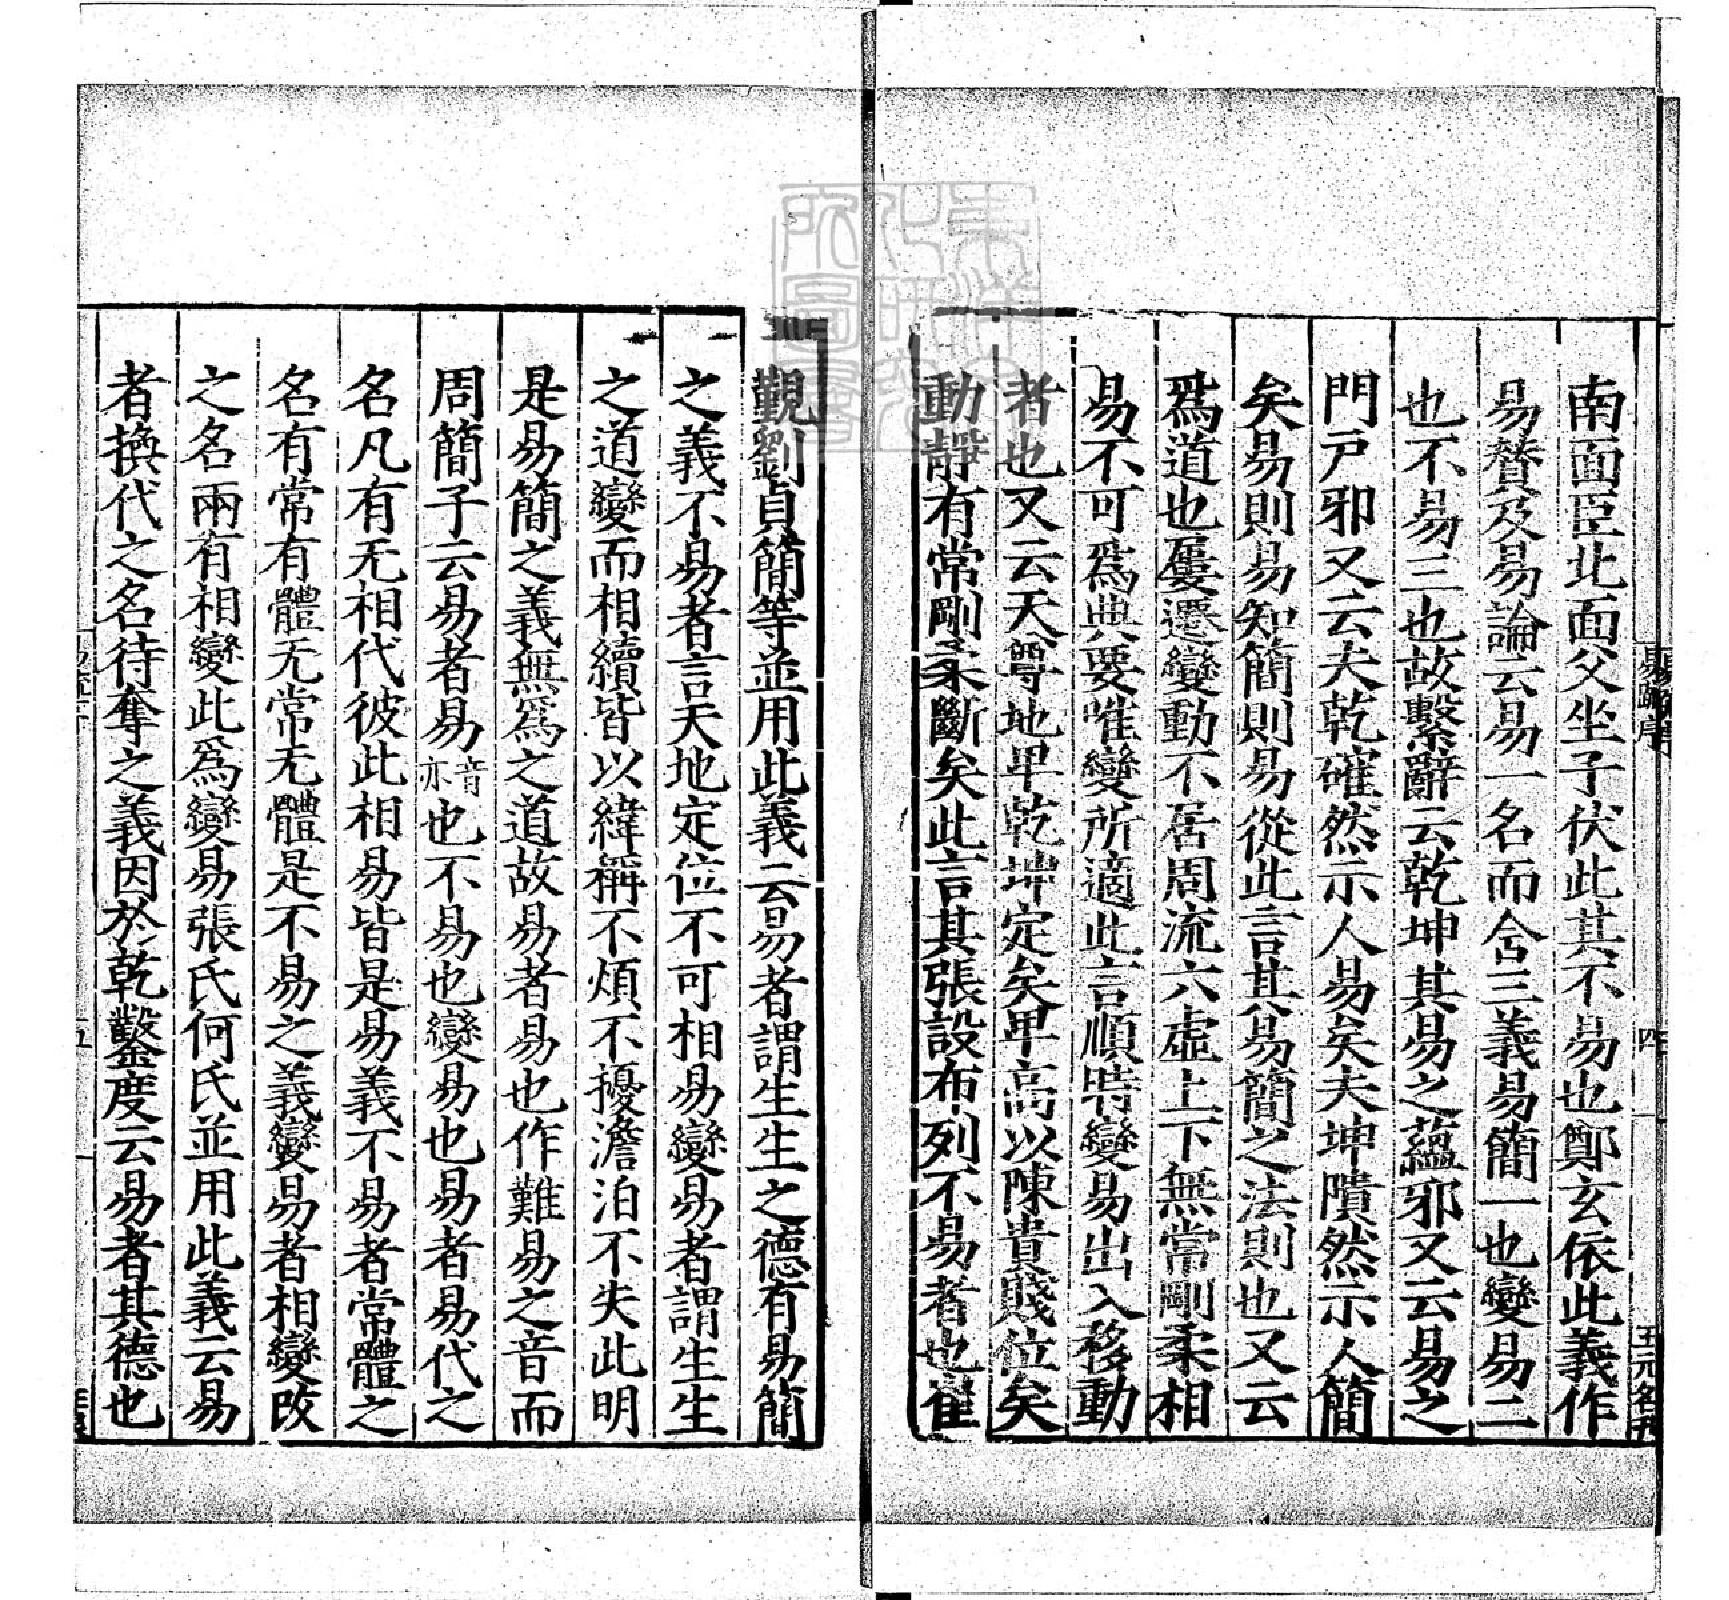 南面臣北面父坐子伏此其不易也鄭玄依此義作
易賛及易論云易一名而含三義易簡一也變易二
也不易三也故繫辭云乾坤其易之蘊邪又云易之
門戸邪又云夫乾確然示人易矣夫坤隤然示人簡
矣易則易知簡則易從此言其易簡之法則也又云
爲道也屢遷變動不居周流六虛上下無常剛柔相
易不可爲典要唯變所適此言順時變易出入移動
者也又云天尊地卑乾坤定矣卑高以陳貴賤位矣
動靜有常剛柔斷矣此言其張設布列不易者也崔
覲劉貞簡等並用此義云易者謂生生之德有易簡
之義不易者言天地定位不可相易變易者謂生生
之道變而相續皆以緯稱不煩不擾澹泊不失此明
是易簡之義無爲之道故易者易也作難易之音而
周簡子云易者易音亦也不易也變易也易者易代之
名凡有无相代彼此相易皆是易義不易者常體之
名有常有體无常无體是不易之義變易者相變改
之名兩有相變此爲變易張氏何氏並用此義云易
者換代之名待奪之義因於乾鑿度云易者其德也
易疏序
四
五